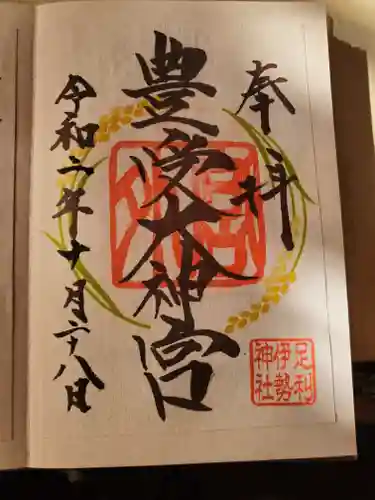 奉拝
豊受大神宮
令和二年十月二十八日
足利
伊勢
神社